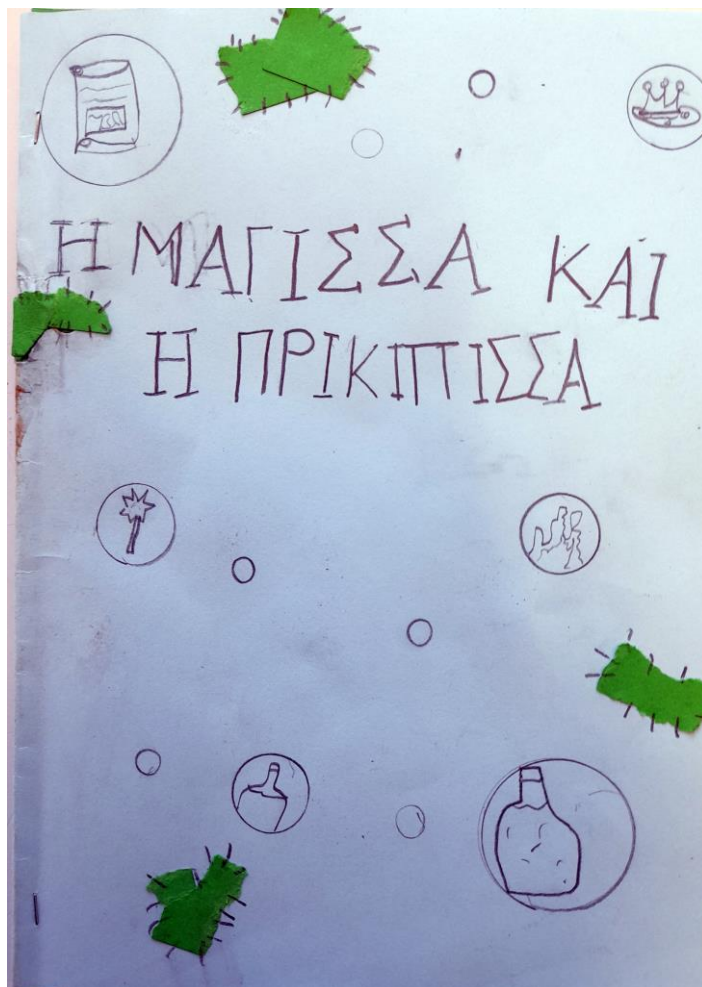 Η ΜΑΓΙΣΣΑ ΚΑΙ
Η ΠΡΙΚΙΠΙΣΣΑ